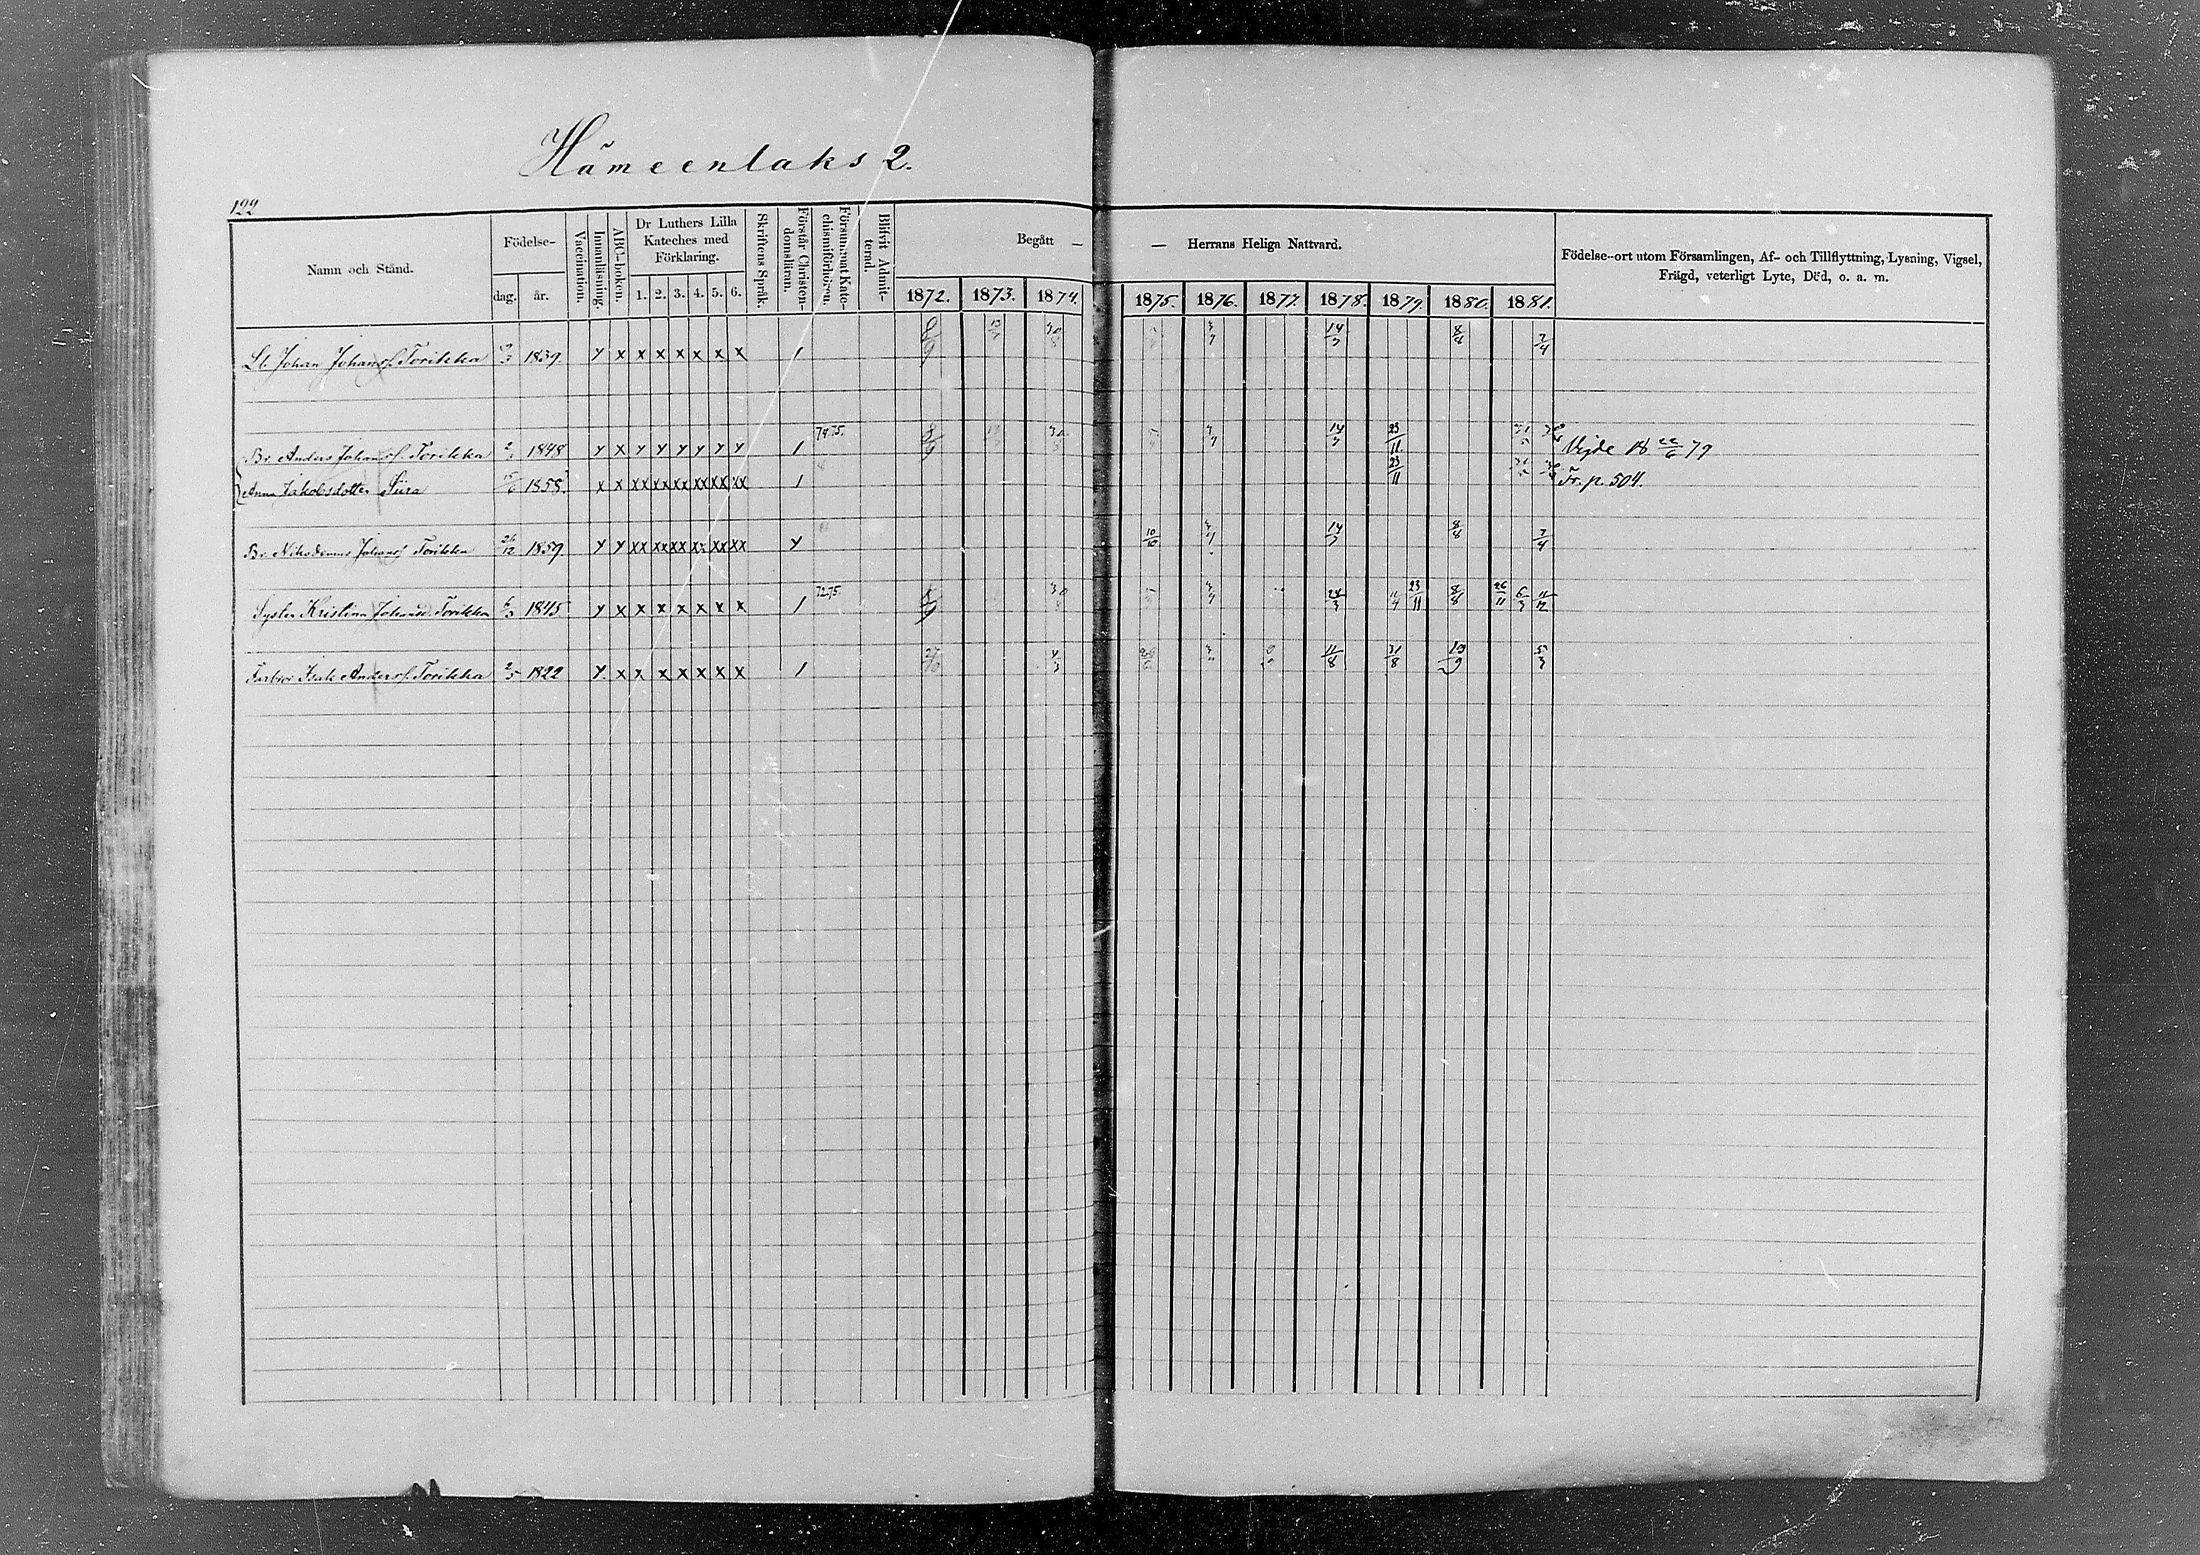 Hämeenlaks 2.
122
Namn och Stånd.
Födelse-
dag. år.
Vaccination.
Innanläsning.
ABC-boken.
Dr Luthers Lilla Kateches med Förklaring.
1. 2. 3. 4. 5. 6.
Skriftens Språk.
Förstår Christendomsläran.
Försummat Katechismiförhören.
Blifvit Admitterad.
Begått — — Herrans Heliga Nattvard.
1872. 1873. 1874. 1875. 1876. 1877. 1878. 1879. 1880. 1881.
Födelse-ort utom Församlingen, Af- och Tillflyttning, Lysning, Vigsel,
Frägd, veterligt Lyte, Död, o. a. m.
Johan Johansf. Torikka 1839. y x x x x x x x 1 8/9 14/7 8/8 7/4
Br. Anders Johansf. Torikka 1848 y x y y y y y y 1 8/9 30/8 14/7 23/11 Vigde 18 22/6 79
Anna Jakobsdotter Siira 1858. x x xx xx xx xx xx xx 1 23/11 Fr. p. 504.
Br. Nikodemus Johansf. Torikka 26/12 1859. y y xx xx xx xx xx xx y 10/10 14/7 8/8 7/4
Syster Kristina Johansd. Torikka 1845 y x x x x x x x 1 72.75. 30/8 24/3 11/4 23/11 8/8 26/11 6/3 11/12
Farbror Isak Andersf. Torikka 2/5 1822 y. x x x x x x x 1 4/3 11/8 31/8 19/9 5/3